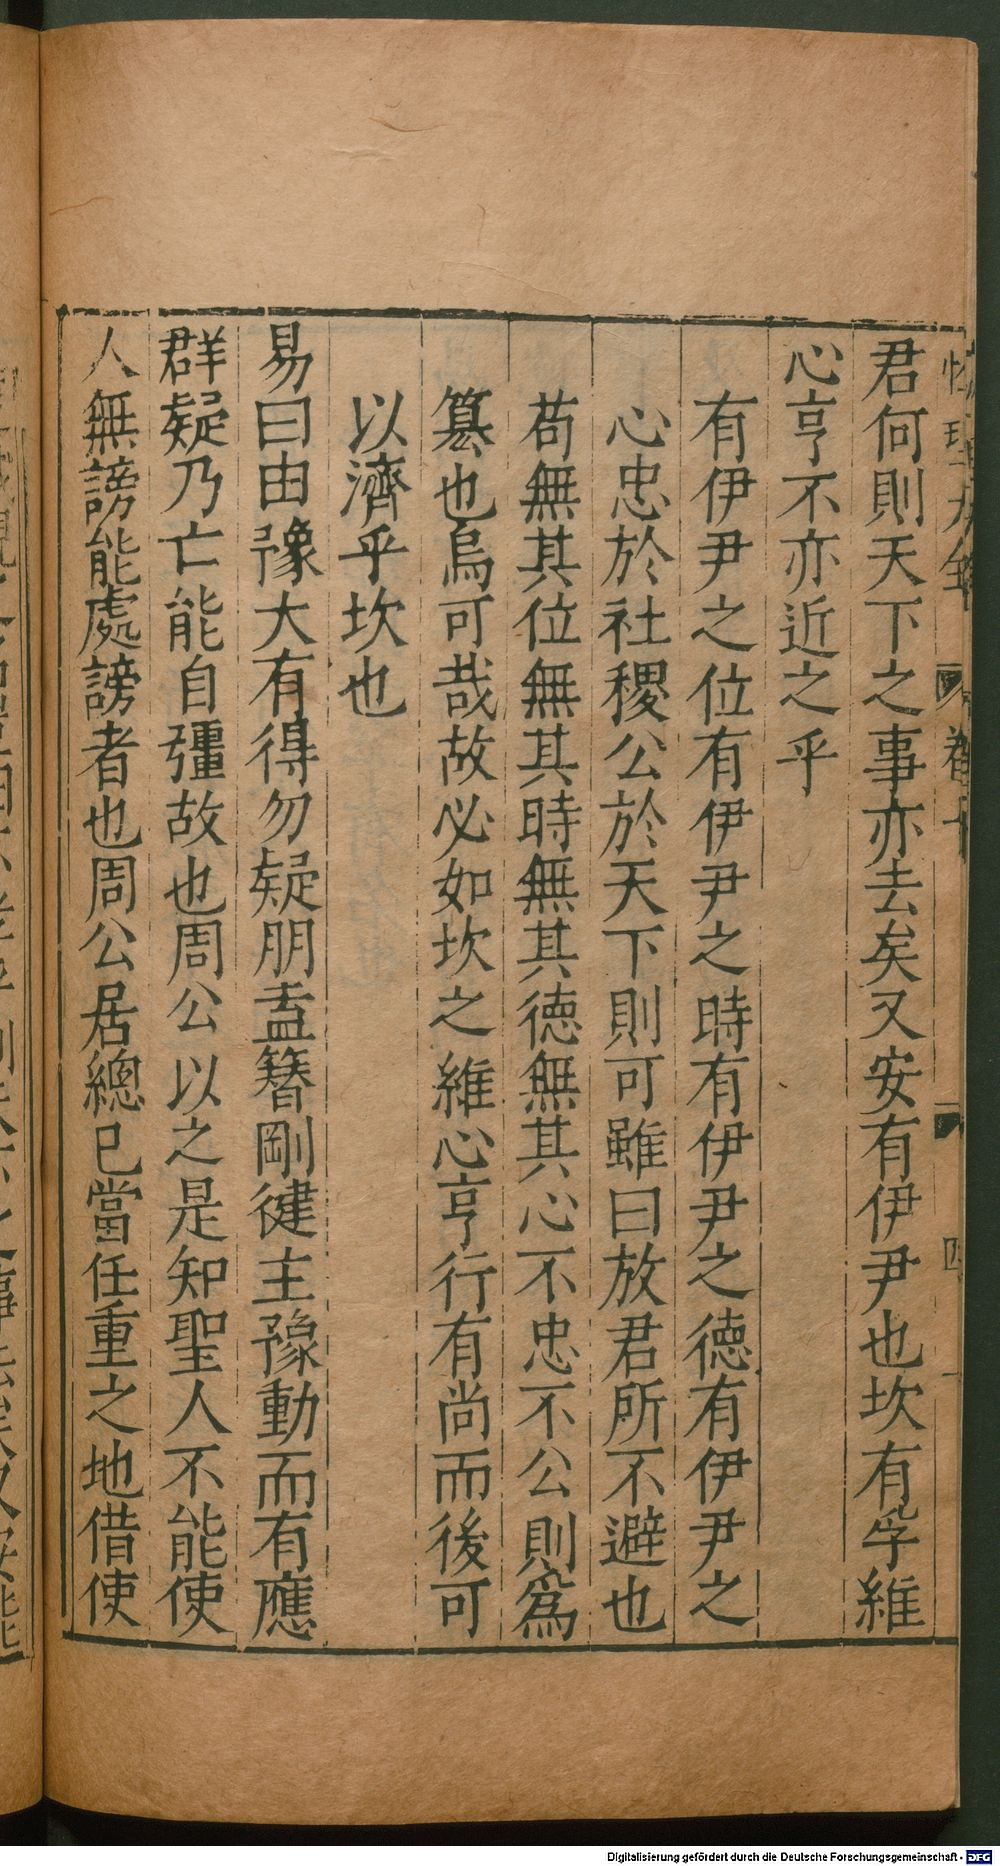 性理大全 卷十 四
君何則天下之事亦去矣又安有伊尹也坎有孚維
心亨不亦近之乎
有伊尹之位有伊尹之時有伊尹之德有伊尹之
心忠於社稷公於天下則可雖曰放君所不避也
苟無其位無其時無其德無其心不忠不公則爲
篡也烏可哉故必如坎之維心亨行有尚而後可
以濟乎坎也
易曰由豫大有得勿疑朋盍簪剛健主豫動而有應
群疑乃亡能自彊故也周公以之是知聖人不能使
人無謗能處謗者也周公居總已當任重之地借使
Digitalisierung gefördert durch die Deutsche Forschungsgemeinschaft - DFG